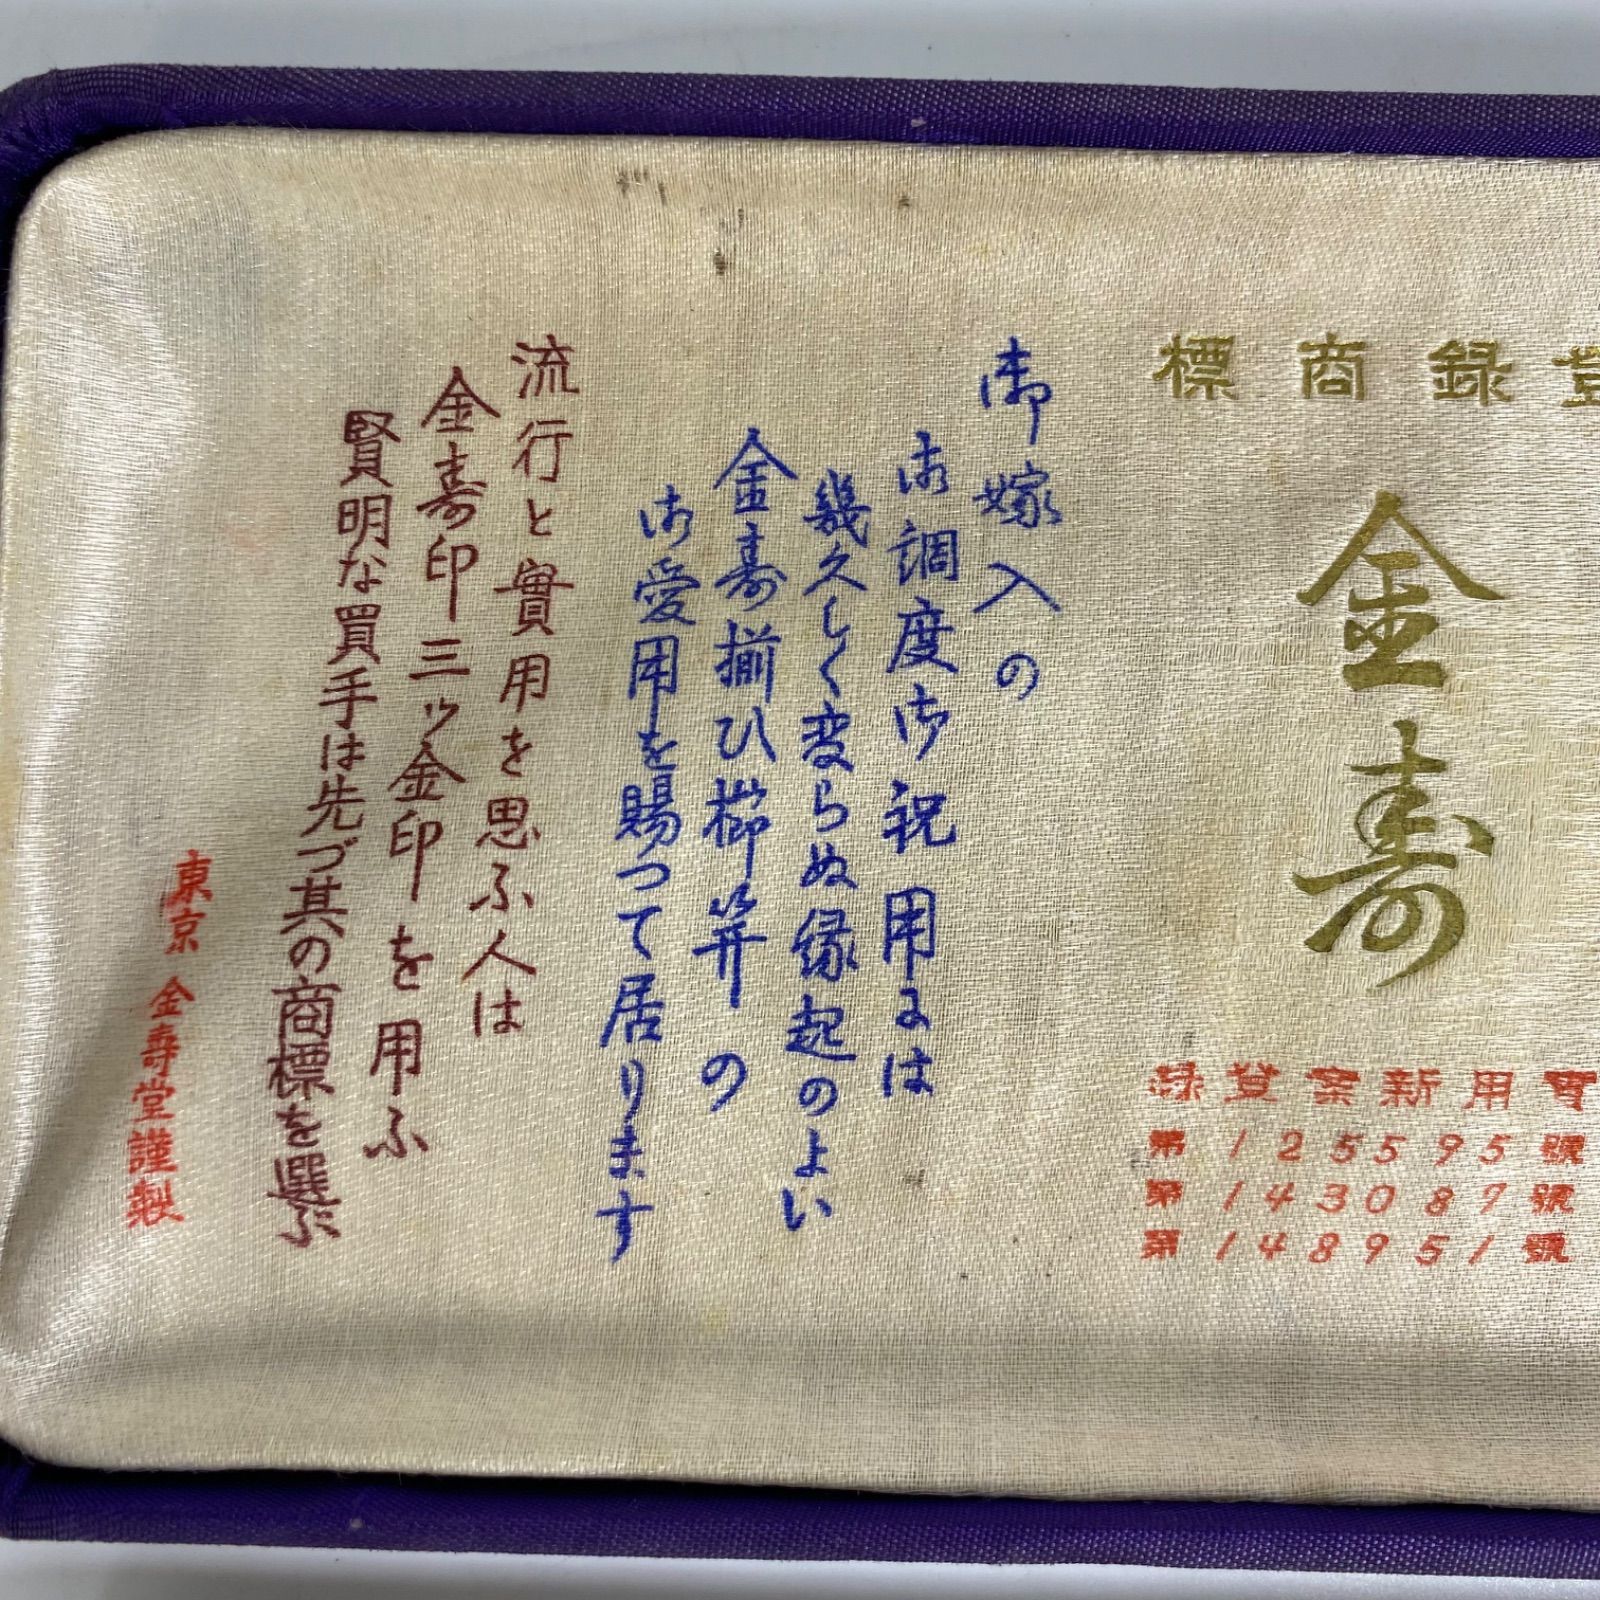 登録商標
金寿
實用新案登録
第125595號
第143087號
第148951號
御嫁入の
御調度御祝用には
幾久しく変らぬ縁起のよい
金寿揃ひ櫛笄の
御愛用を賜つて居ります
流行と實用を思ふ人は
金寿印三ッ金印を用ふ
賢明な買手は先づ其の商標を選ぶ
東京 金壽堂謹製